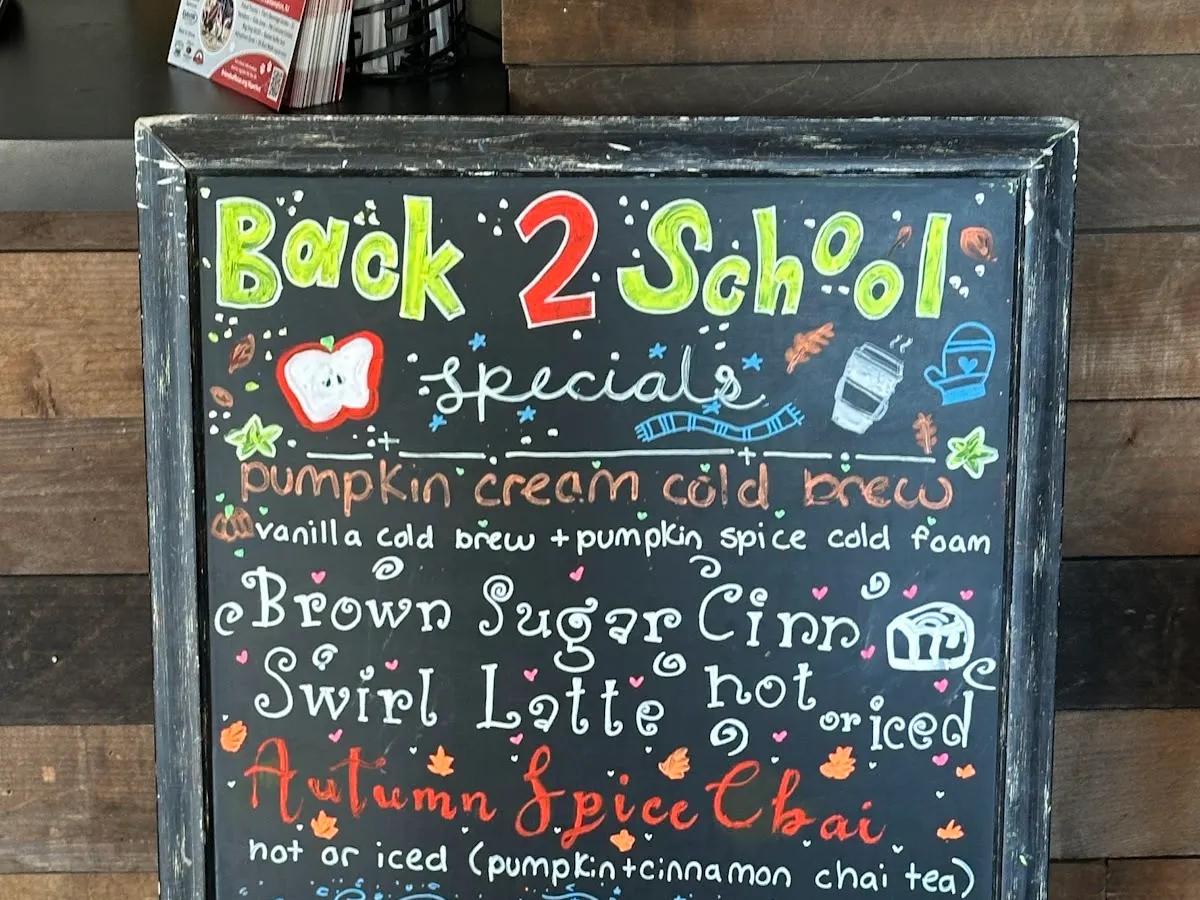 Back 2 School
specials
pumpkin cream cold brew
vanilla cold brew + pumpkin spice cold foam
Brown Sugar Cinn
Swirl Latte hot or iced
Autumn Spice Chai
hot or iced (pumpkin+cinnamon chai tea)